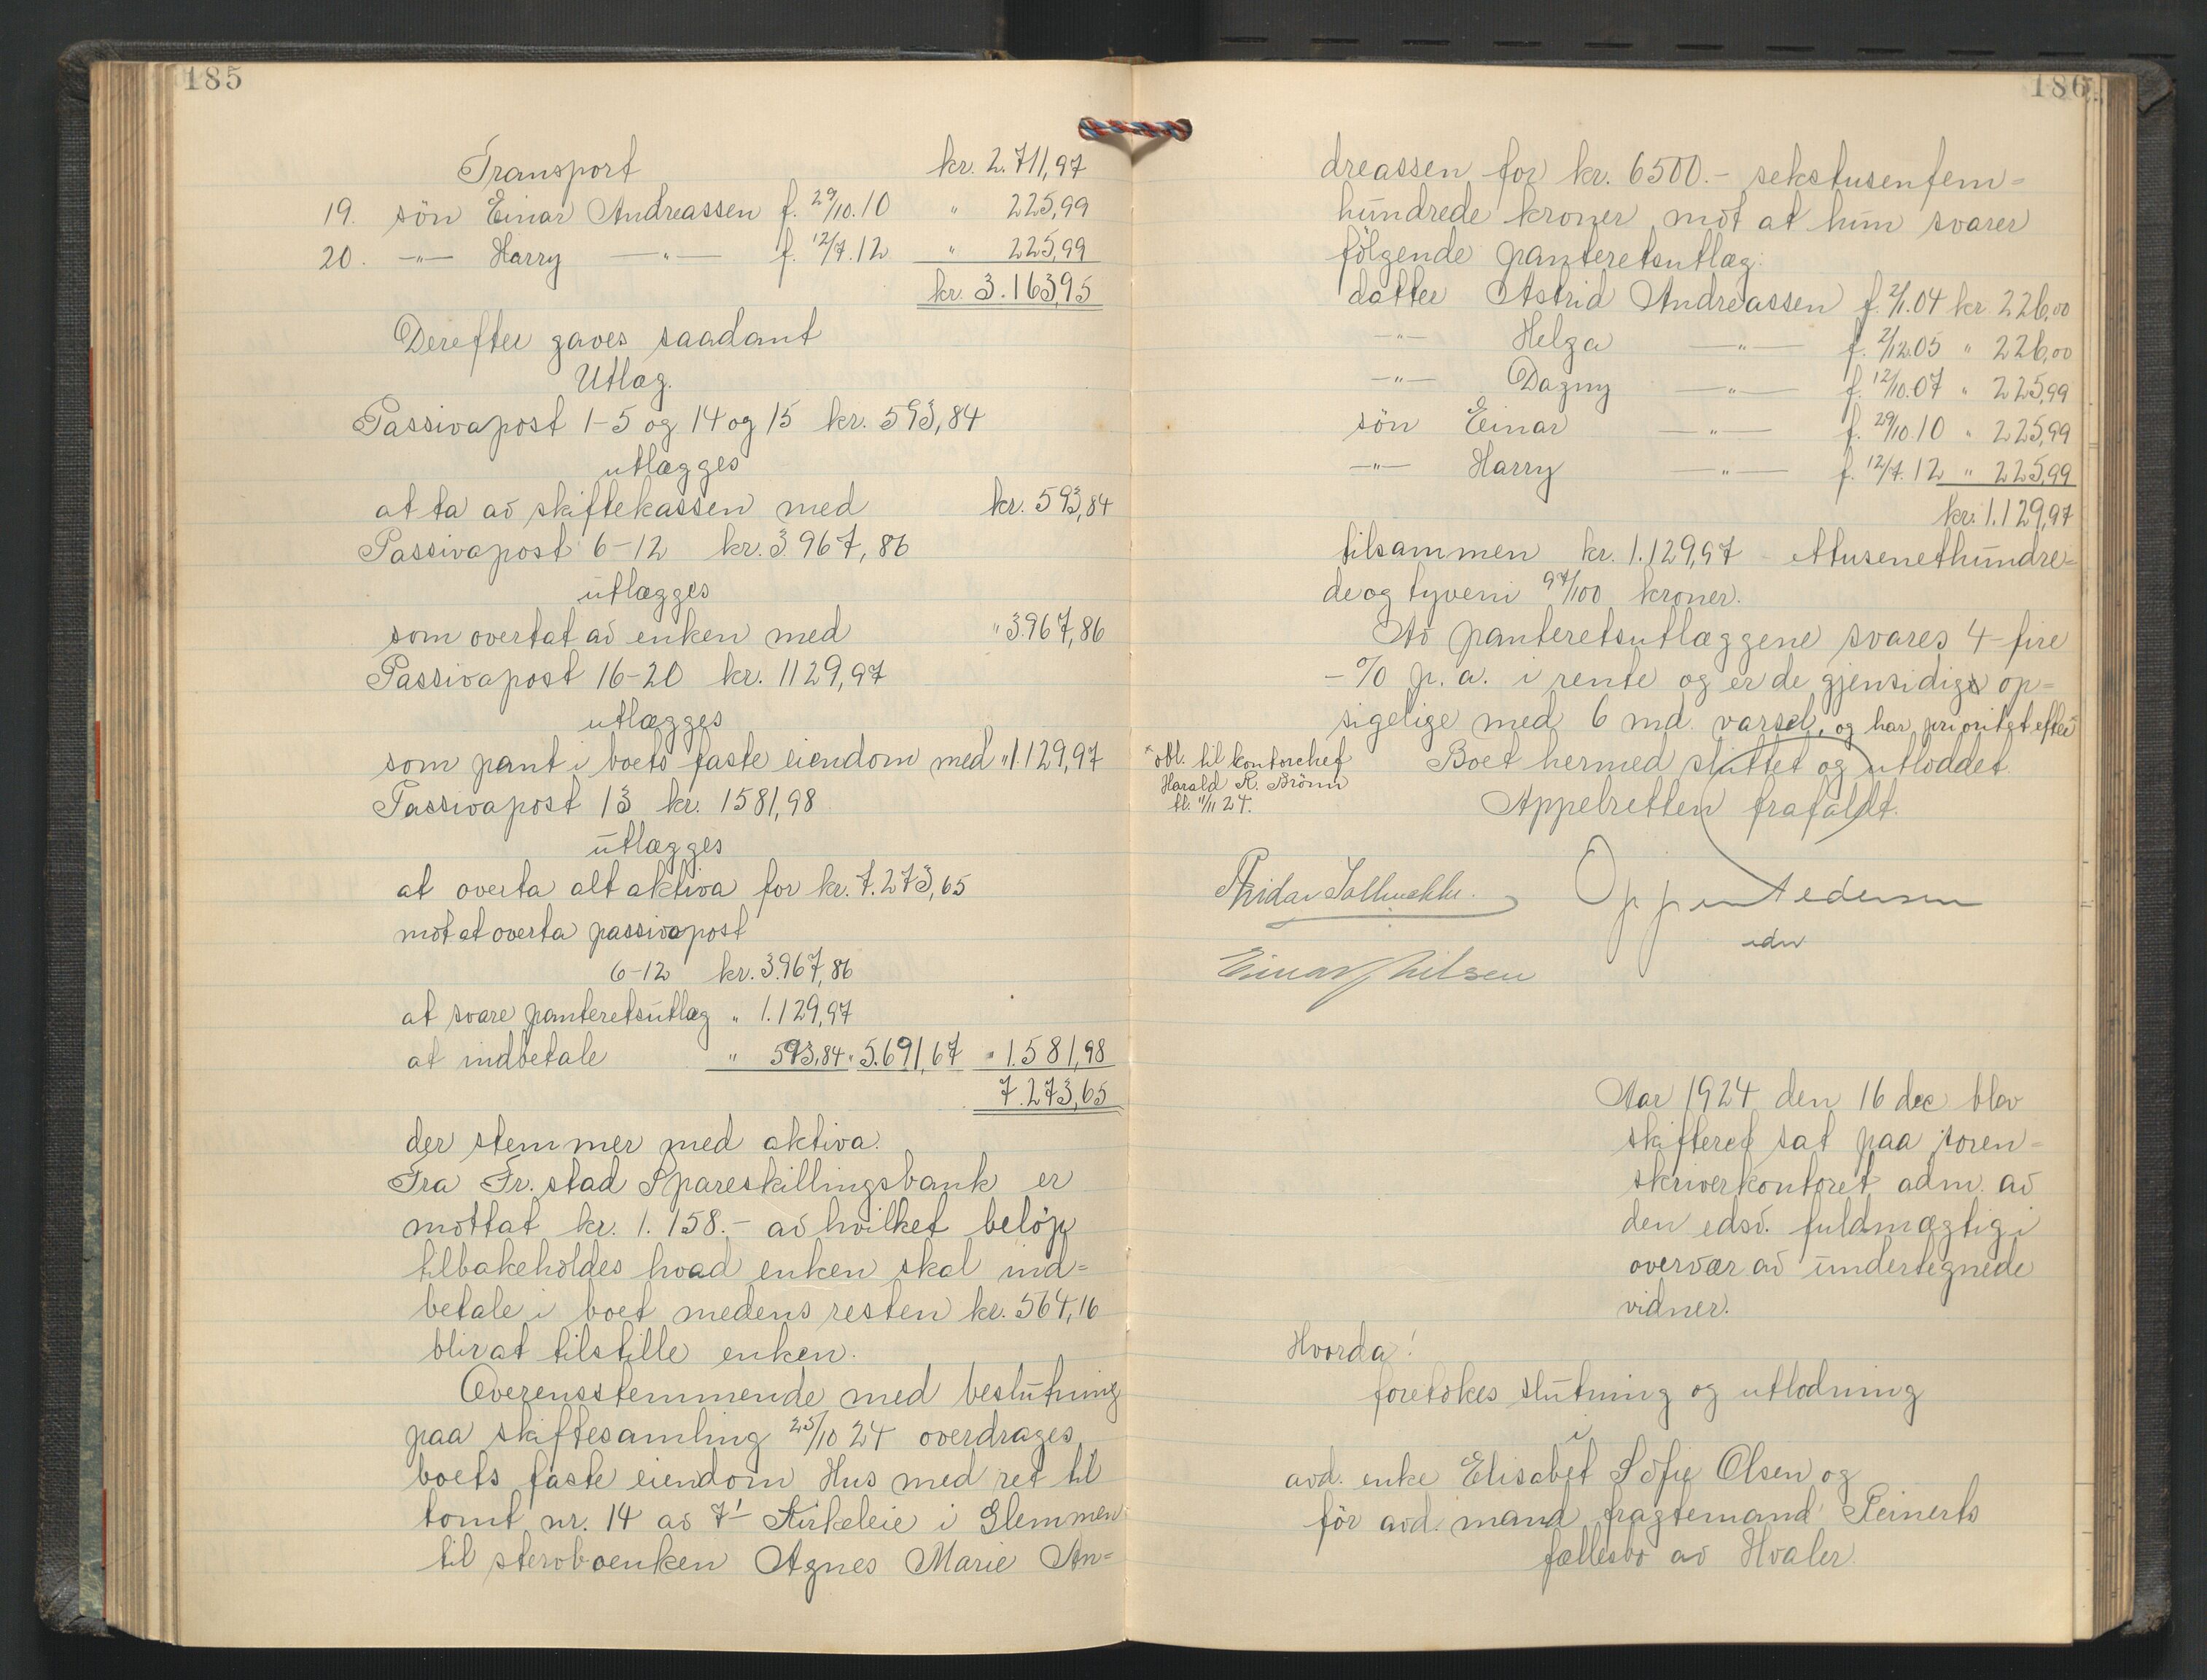 185
Transport kr. 2.711,97
19. sön Einar Andreassen f. 29/10.10 " 225,99
20. —"— Harry —"— f. 12/7.12 " 225,99
kr. 3.163,95
Derefter gaves saadant
Utlæg.
Passivapost 1-5 og 14 og 15 kr. 593,84
utlægges
at ta av skiftekassen med kr. 593,84
Passivapost 6-12 kr. 3.967,86
utlægges
som overtat av enken med " 3.967,86
Passivapost 16-20 kr. 1129,97
utlægges
som pant i boets faste eiendom med " 1.129,97
Passivapost 13 kr. 1581,98
utlægges
at overta alt aktiva for kr. 7.273,65
mot at overta passivapost
6-12 kr. 3.967,86
at svare panteretsutlæg " 1.129,97
at indbetale " 593,84 " 5.691,67 " 1.581,98
7.273,65
der stemmer med aktiva.
Fra Fr.stad Spareskillingsbank er
mottat kr. 1.158.- av hvilket beløp
tilbakeholdes hvad enken skal ind=
betale i boet medens resten kr. 564,16
blir at tilstille enken.
Overensstemmende med beslutning
paa skiftesamling 25/10 24 overdrages
boets faste eiendom Hus med ret til
tomt nr. 14 av 7' Kirkeleie i Glemmen
til stervboenken Agnes Marie An=
186
dreassen for kr. 6500.- sekstusenfem=
hundrede kroner mot at hun svarer
følgende panteretsutlæg:
datter Astrid Andreassen f. 2/1.04 kr. 226,00
—"— Helga —"— f. 2/12.05 " 226,00
—"— Dagny —"— f. 12/10.07 " 225,99
sön Einar —"— f. 29/10.10 " 225,99
—"— Harry —"— f. 12/7.12 " 225,99
kr. 1.129,97
tilsammen kr. 1.129,97 - ettusenethundre=
de og tyveni 97/100 kroner.
Av panteretsutlæggene svares 4-fire
-% p.a. i rente og er de gjensidig op=
sigelige med 6 md. varsel, og har prioritet efter
* obl. til kontorchef
Harald R. Brönn
tl. 11/11 24.
Boet hermed sluttet og utloddet.
Appelretten frafaldt.
Einar Nilsen
edsv
Aar 1924 den 16 dec blev
skifteret sat paa soren=
skriverkontoret adm. av
den edsv. fuldmægtig i
overvær av undertegnede
vidner.
Hvorda!
foretokes slutning og utlodning
i
avd. enke Elisabet Sofie Olsen og
för avd. mand fragtemand Reinerts
fællesbo av Hvaler.